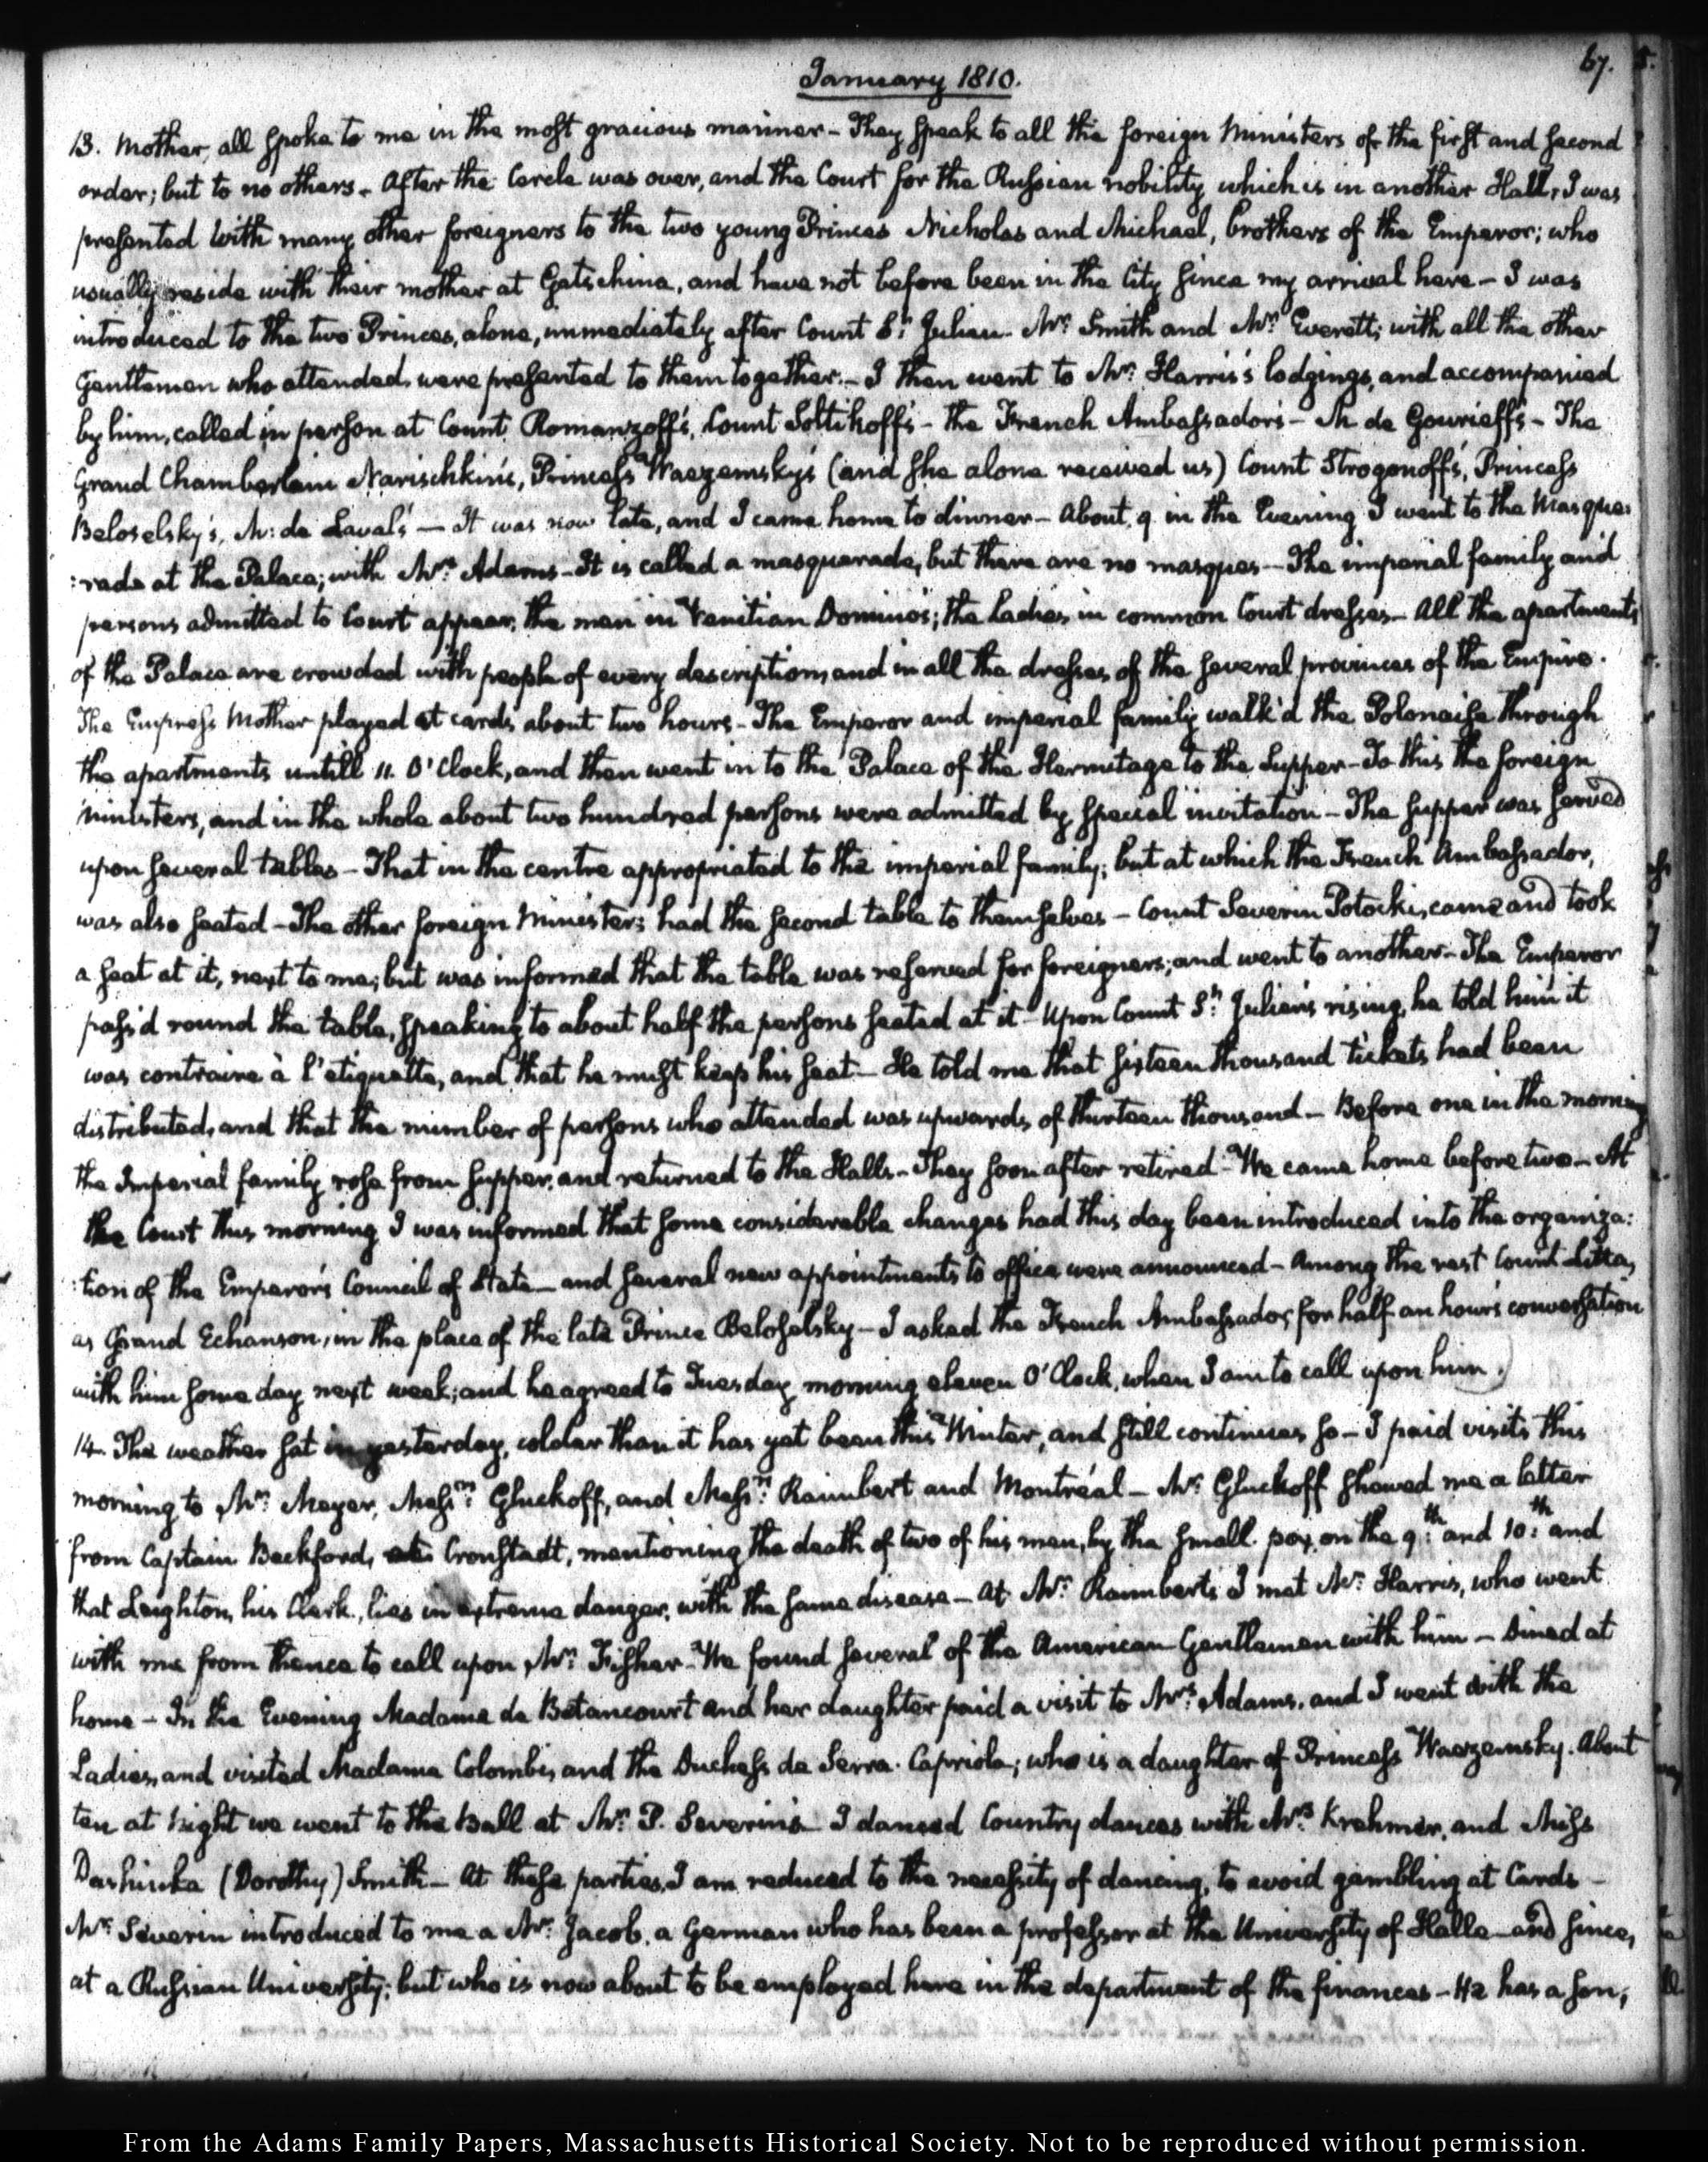 67.
January 1810.
13. Mother, all spoke to me in the most gracious manner - They speak to all the foreign Ministers of the first and second
order; but to no others - After the Cercle was over, and the Court for the Russian nobility which is in another Hall, I was
presented with many other foreigners to the two young Princes Nicholas and Michael, brothers of the Emperor; who
usually reside with their mother at Gatschina, and have not before been in the City since my arrival here - I was
introduced to the two Princes, alone, immediately after Count St. Julien - Mr. Smith and Mr. Everett, with all the other
Gentlemen who attended, were presented to them together. - I then went to Mr. Harris's lodgings, and accompanied
by him, called in person at Count Romanzoff's, Count Soltikoff's - the French Ambassador's - M. de Gourieff's - The
Grand Chamberlain Narischkin's, Princess Waezemsky's (and she alone received us) Count Strogonoff's, Princess
Beloselsky's, M: de Laval's — It was now late, and I came home to dinner - About 9 in the Evening I went to the Masque:
:rade at the Palace; with Mrs. Adams - It is called a masquerade, but there are no masques - The imperial family and
persons admitted to Court appear, the men in Venitian Domino's; the Ladies in common Court dresses - All the apartments
of the Palace are crowded with people of every description, and in all the dresses of the several provinces of the Empire.
The Empress Mother played at cards about two hours - The Emperor and imperial family walk'd the Polonaise through
the apartments untill 11. O'Clock, and then went in to the Palace of the Hermitage to the Supper - To this the foreign
Ministers, and in the whole about two hundred persons were admitted by special invitation - The supper was served
upon several tables - That in the centre appropriated to the imperial family; but at which the French Ambassador,
was also seated - The other foreign Ministers had the second table to themselves - Count Severin Potocki, came and took
a seat at it, next to me; but was informed that the table was reserved for foreigners; and went to another - The Emperor
pass'd round the table, speaking to about half the persons seated at it - Upon Count St. Julien's rising, he told him it
was contraire à l'etiquette, and that he must keep his seat - He told me that sixteen thousand tickets had been
distributed, and that the number of persons who attended was upwards of thirteen thousand - Before one in the morning
the Imperial family rose from supper, and returned to the Halls - They soon after retired - We came home before two - At
the Court this morning I was informed that some considerable changes had this day been introduced into the organiza:
:tion of the Emperor's Council of State - and several new appointments to office were announced - Among the rest Count Litta,
as Grand Echanson, in the place of the late Prince Beloselsky - I asked the French Ambassador, for half an hour's conversation
with him some day next week; and he agreed to Tuesday morning eleven O'Clock, when I am to call upon him.
14. The weather sat in yesterday, colder than it has yet been this Winter, and still continues so - I paid visits this
morning to Mr. Meyer, Messrs. Gluckoff, and Messrs. Raimbert and Montréal - Mr. Gluckoff showed me a letter
from Captain Beckford, at Cronstadt, mentioning the death of two of his men, by the small pox, on the 9th. and 10th. and
that Leighton, his Clerk, lies in extreme danger, with the same disease - At Mr. Raimbert's I met Mr. Harris, who went
with me from thence to call upon Mr. Fisher - We found several of the American Gentlemen with him - Dined at
home - In the Evening Madame de Betancourt and her daughter paid a visit to Mrs. Adams, and I went with the
Ladies, and visited Madame Colombi, and the Duchess de Serra-Capriola; who is a daughter of Princess Waezemsky. About
ten at Night we went to the Ball at Mr. P. Severin's - I danced Country dances with Mrs. Krehmer, and Miss
Dashinka (Dorothy) Smith - At these parties, I am reduced to the necessity of dancing, to avoid gambling at Cards -
Mr. Severin introduced to me a Mr. Jacob, a German who has been a professor at the University of Halle - and since,
at a Russian University; but who is now about to be employed here in the department of the finances - He has a son,
From the Adams Family Papers, Massachusetts Historical Society. Not to be reproduced without permission.